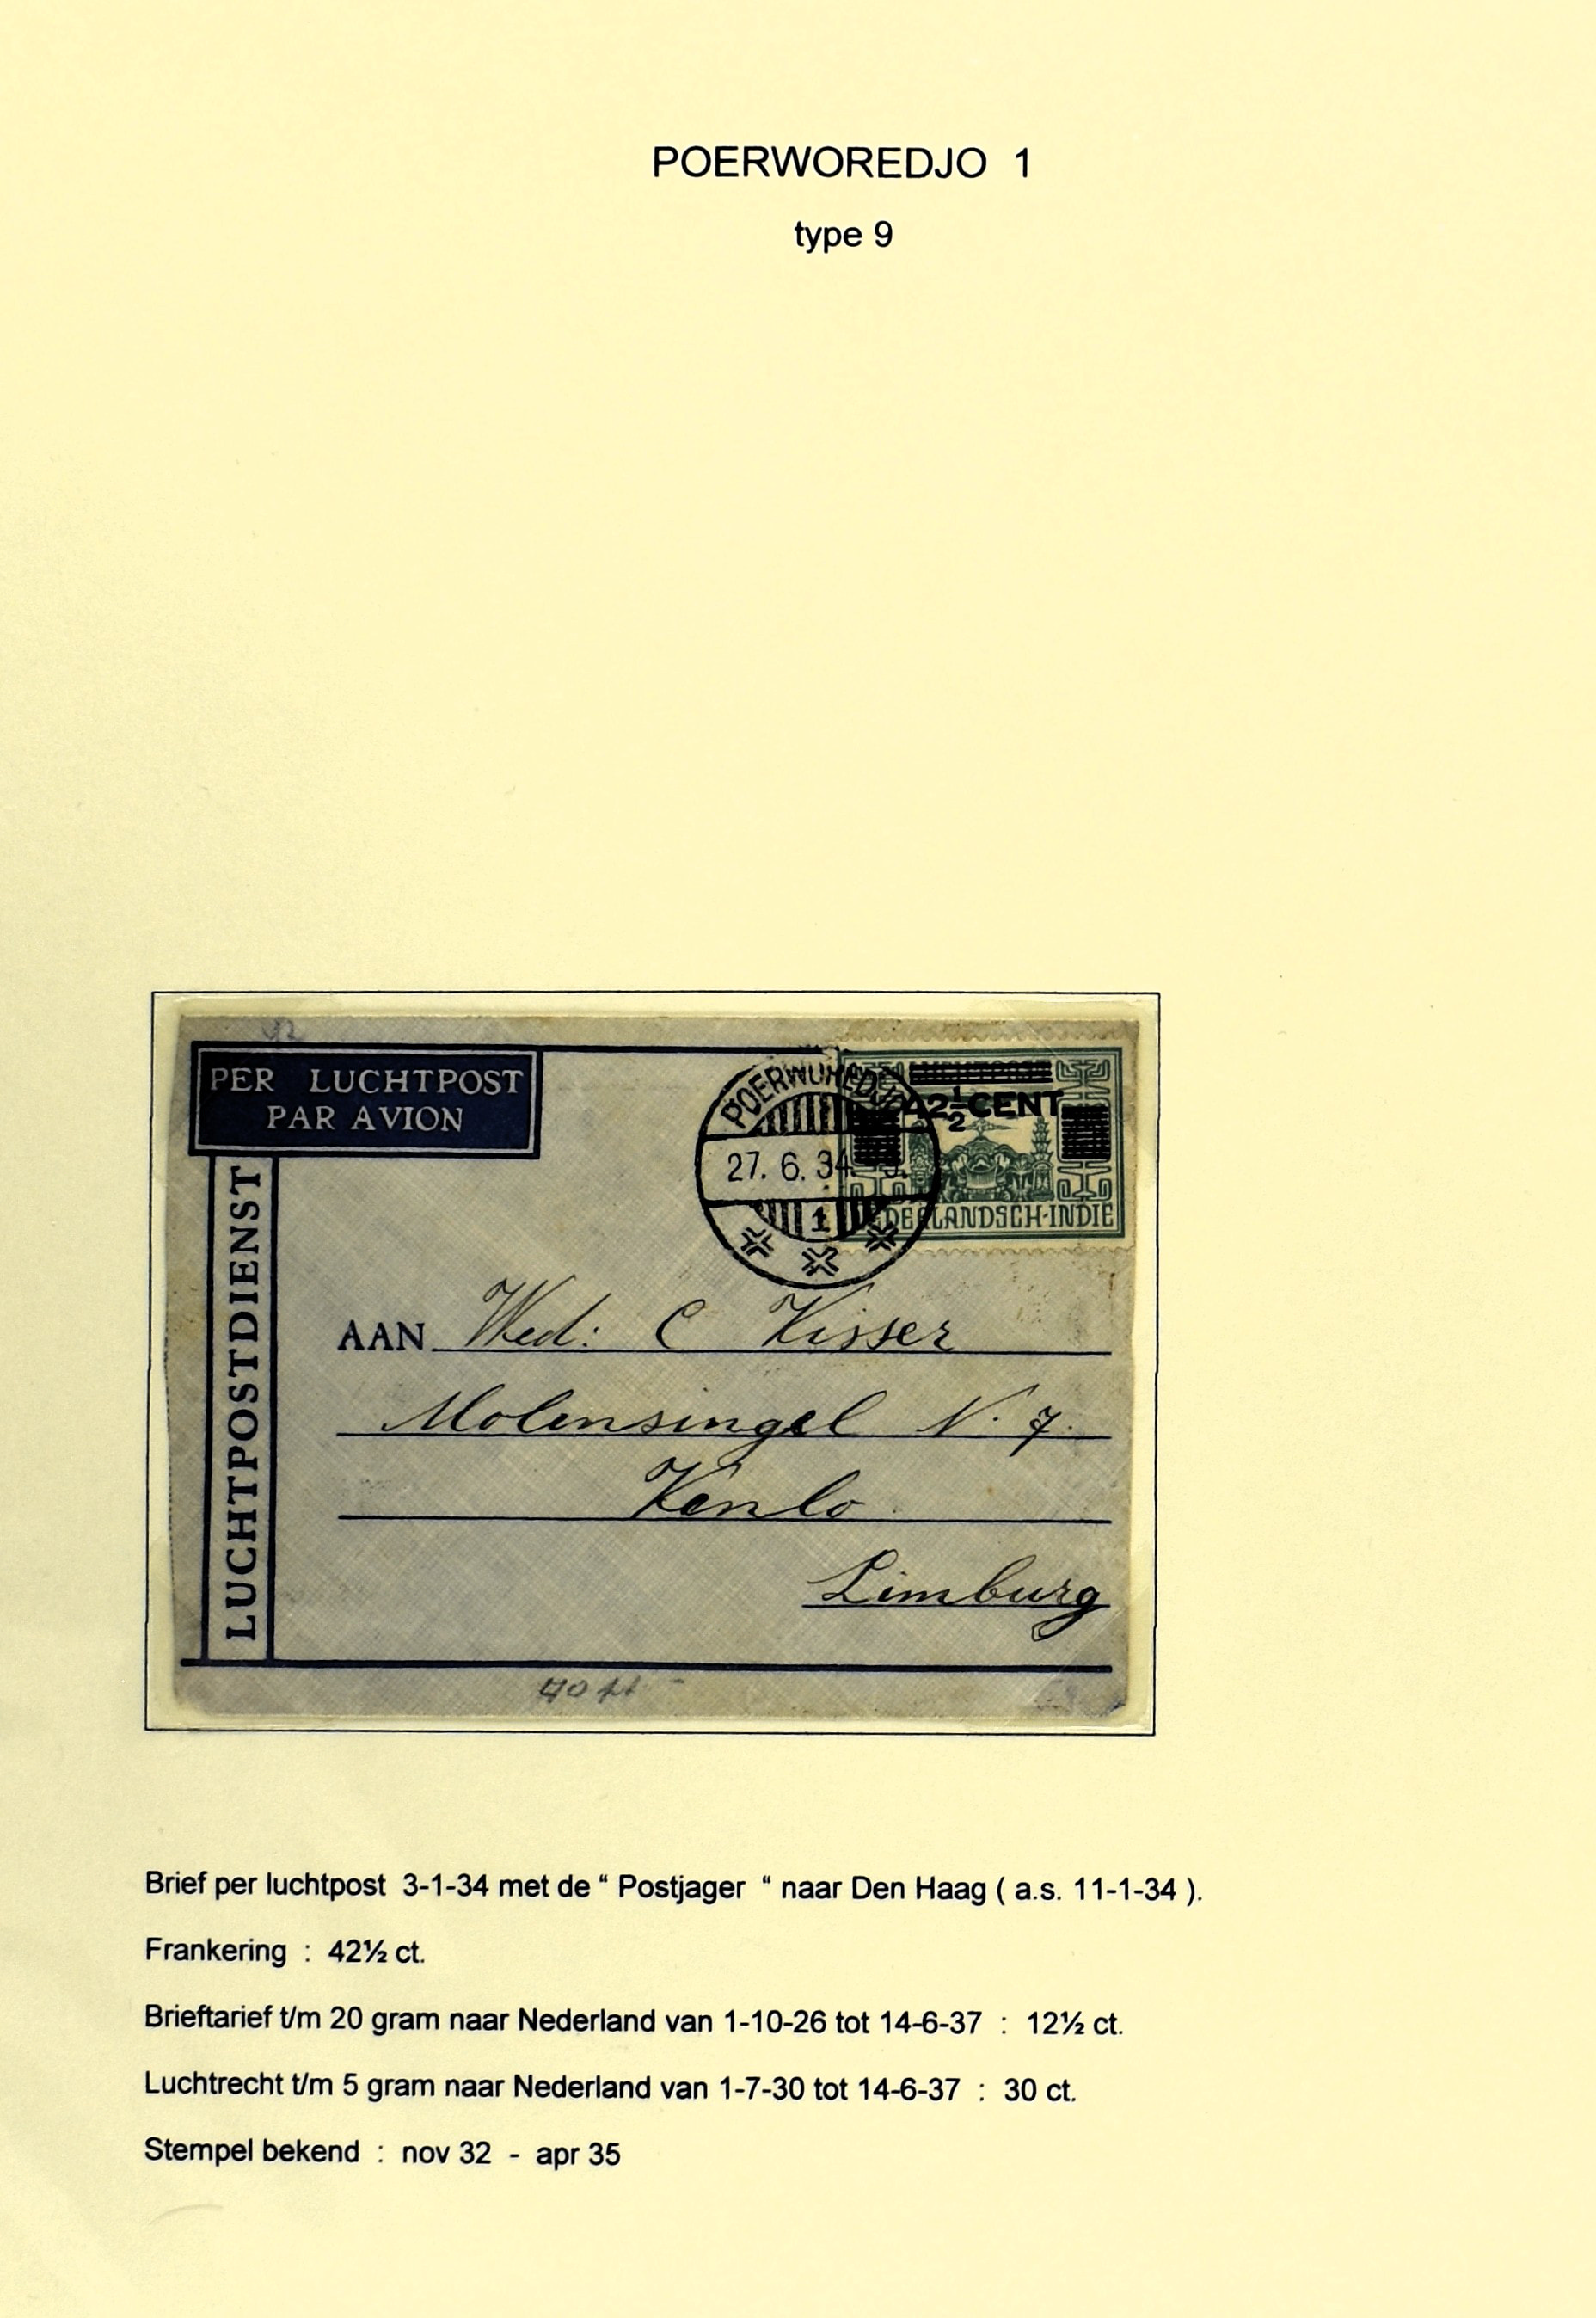 POERWOREDJO 1
type 9
PER LUCHTPOST
PAR AVION
LUCHTPOSTDIENST
POERWOREDJO
27. 6. 34. 9.
1
42½ CENT
NEDERLANDSCH-INDIE
AAN Wed: C Visser
Molensingel N. 7.
Venlo
Limburg
Brief per luchtpost 3-1-34 met de “ Postjager “ naar Den Haag ( a.s. 11-1-34 ).
Frankering : 42½ ct.
Brieftarief t/m 20 gram naar Nederland van 1-10-26 tot 14-6-37 : 12½ ct.
Luchtrecht t/m 5 gram naar Nederland van 1-7-30 tot 14-6-37 : 30 ct.
Stempel bekend : nov 32 - apr 35